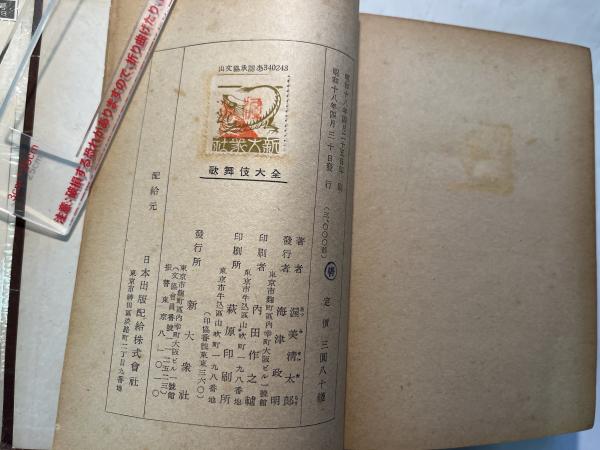 昭和十八年四月二十五日印刷
昭和十八年四月三十日發行
(三、〇〇〇部)
定價 三圓八十錢
出文協承認あ340243號
新大衆社
歌舞伎大全
著者 渥美清太郎
發行者 海津政明
東京市麹町區内幸町大阪ビル一號館
印刷者 内田作之輔
東京市牛込區山吹町一九八番地
印刷所 萩原印刷所
東京市牛込區山吹町一九八番地
(印協番號東東三六〇)
發行所 新大衆社
東京市麹町區内幸町大阪ビル一號館
配給元 日本出版配給株式會社
東京市神田區淡路町二丁目九番地